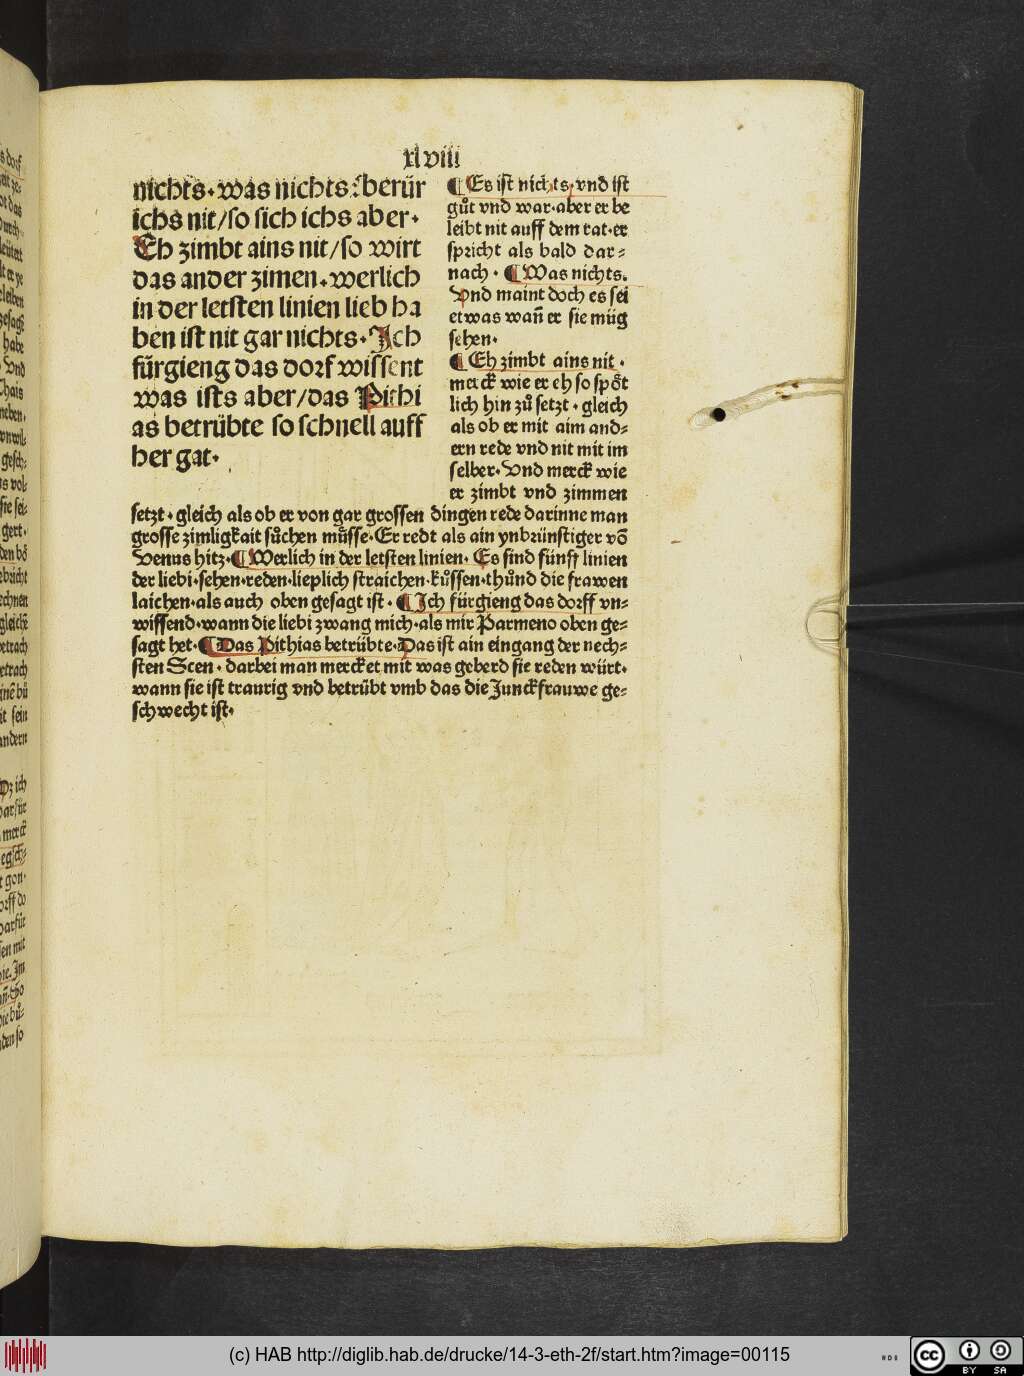 xlviii
nichts·was nichts:berür
ichs nit/so sich ichs aber·
Eh zimbt ains nit/so wirt
das ander zimen·werlich
in der letsten linien lieb ha
ben ist nit gar nichts·Ich
fürgieng das dorf wissent
was ists aber/das Pithi
as betrübte so schnell auff
her gat·
¶Es ist nichts·vnd ist
gůt vnd war·aber er be
leibt nit auff dem rat·er
spricht als bald dar⸗
nach·¶Was nichts.
Vnd maint doch es sei
etwas wañ er sie müg
sehen·
¶Eh zimbt ains nit·
merck wie er eh so spöt
lich hin zů setzt·gleich
als ob er mit aim and⸗
ern rede vnd nit mit im
selber·Vnd merck wie
er zimbt vnd zimmen
setzt·gleich als ob er von gar grossen dingen rede darinne man
grosse zimligkait sůchen můsse·Er redt als ain ynbrünstiger võ
Venus hitz·¶Werlich in der letsten linien·Es sind fünff linien
der liebi·sehen·reden·lieplich straichen·kůssen·thůnd die frawen
laichen·als auch oben gesagt ist·¶Ich fürgieng das dorff vn⸗
wissend·wann die liebi zwang mich·als mir Parmeno oben ge⸗
sagt het·¶Das Pithias betrübte·Das ist ain eingang der nech⸗
sten Scen·darbei man mercket mit was geberd sie reden würt·
wann sie ist traurig vnd betrübt vmb das die Junckfrauwe ge⸗
schwecht ist·
(c) HAB http://diglib.hab.de/drucke/14-3-eth-2f/start.htm?image=00115
cc BY SA